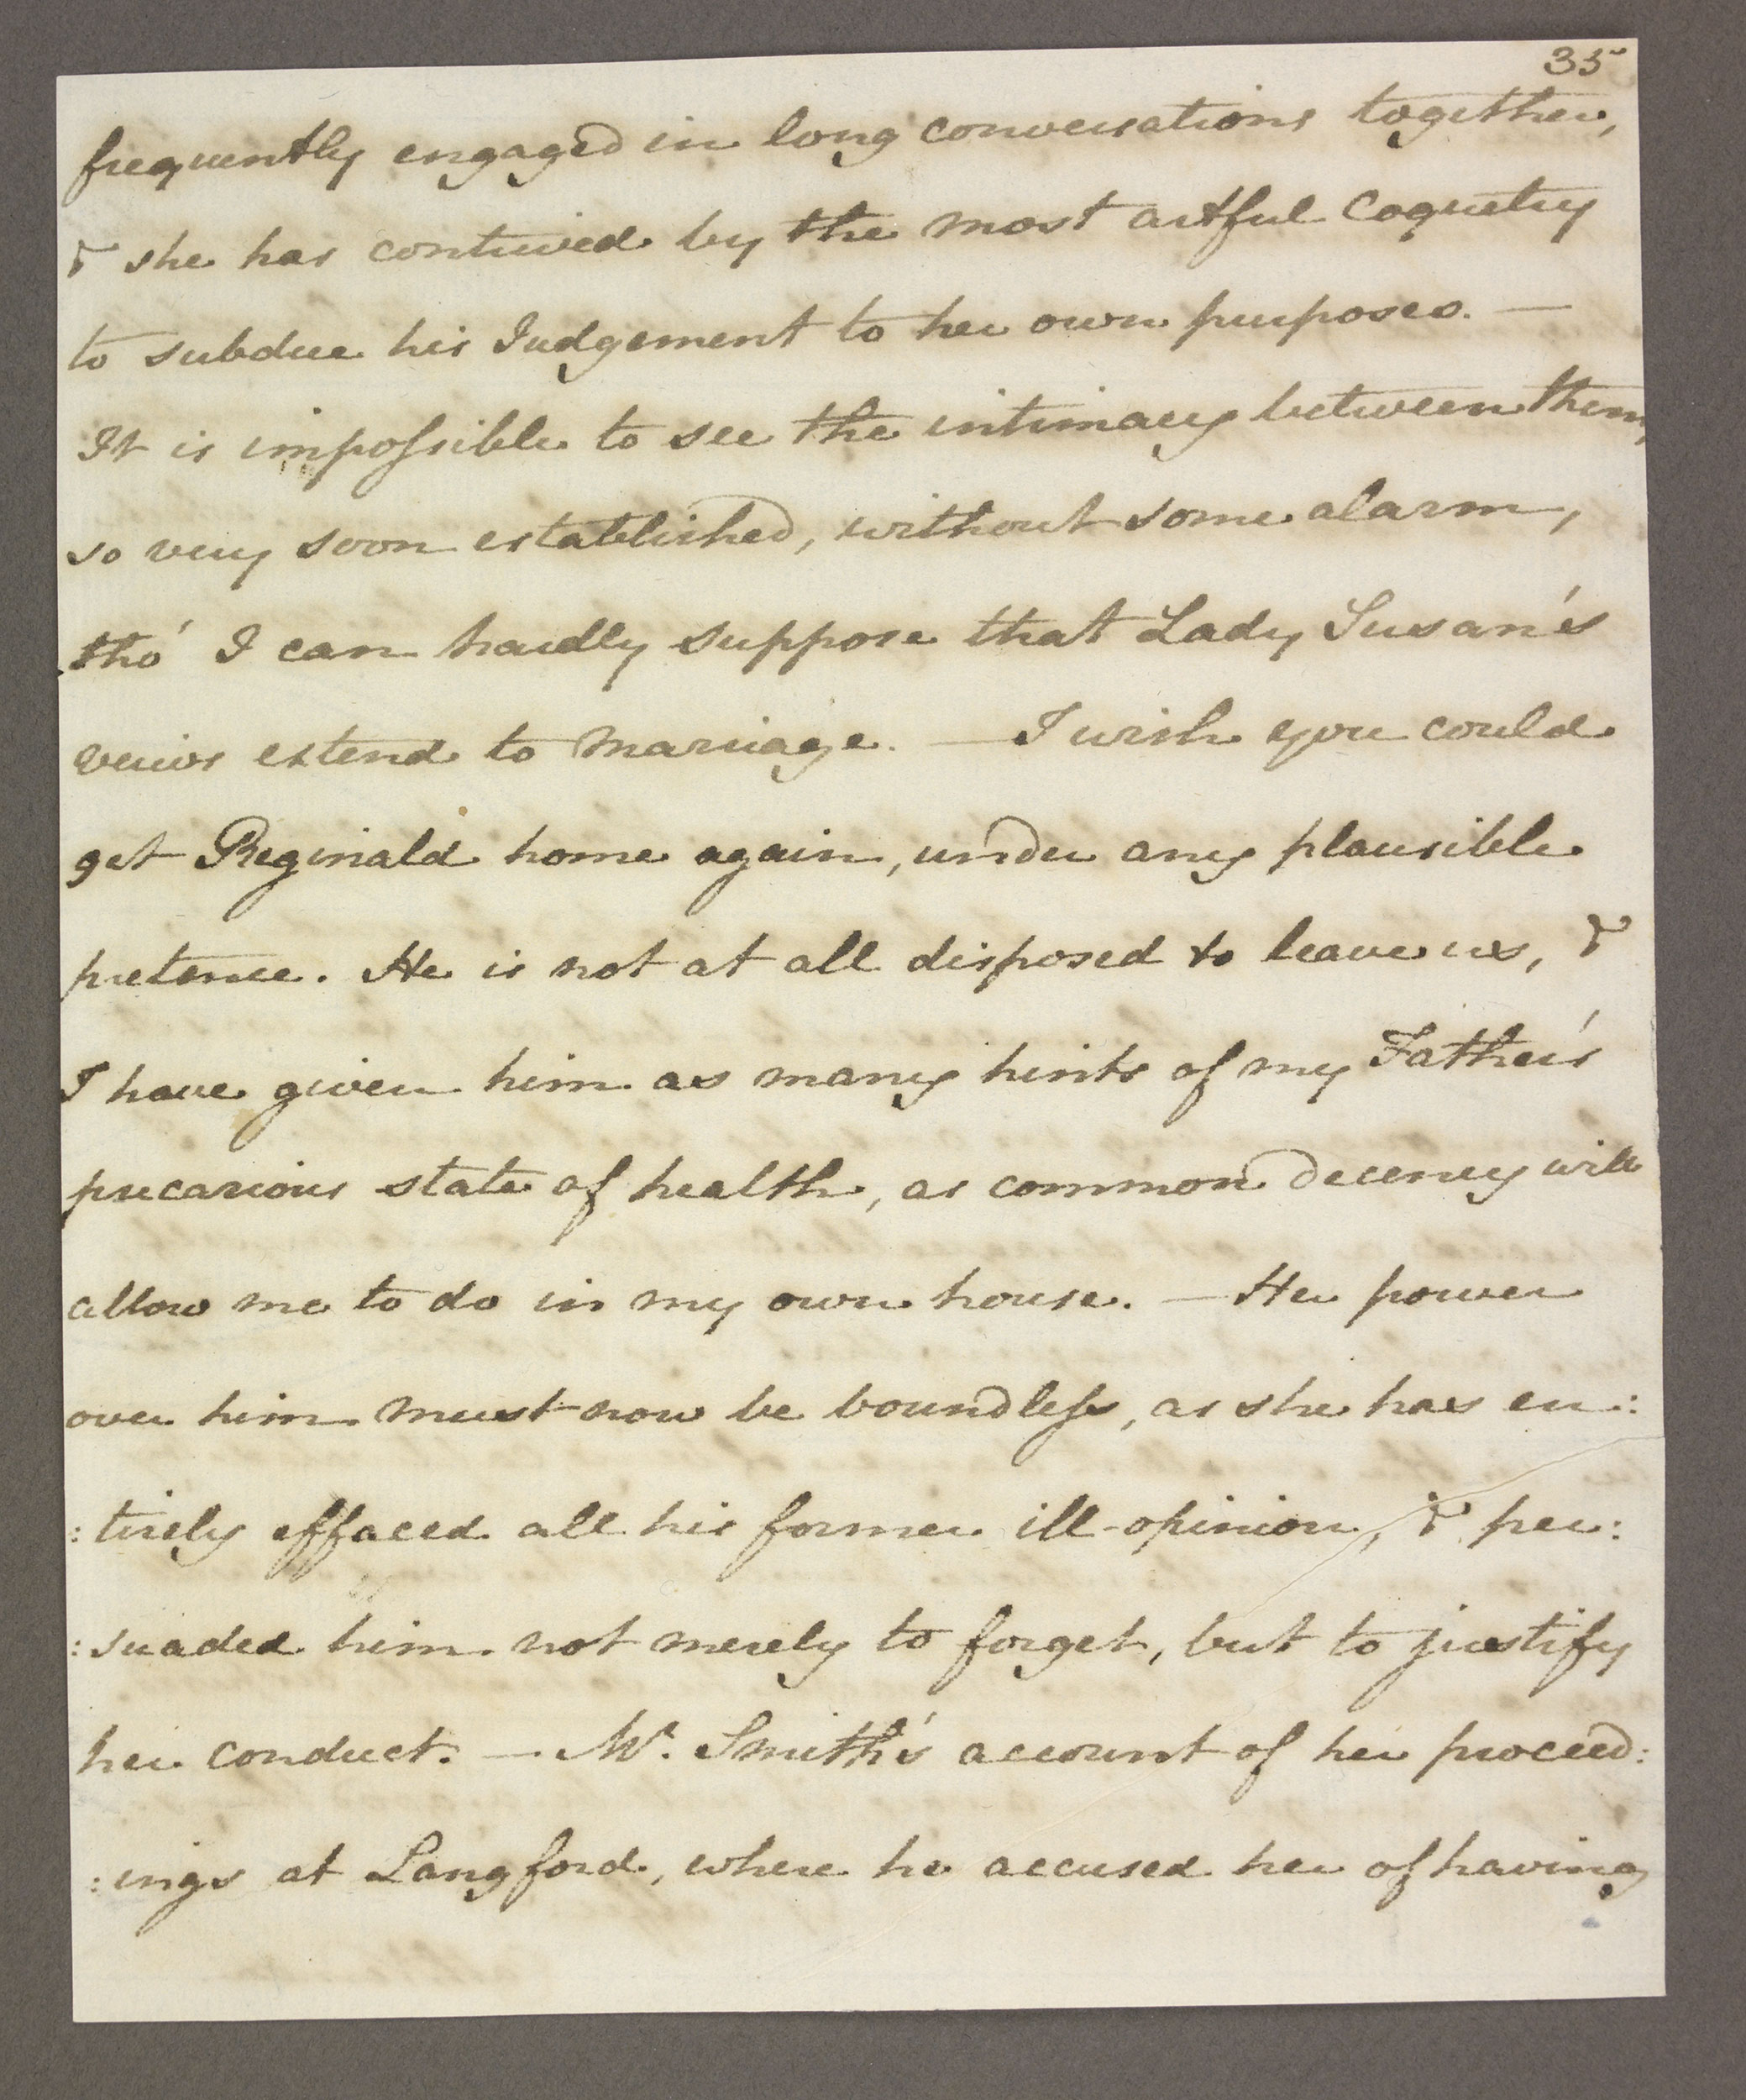 35
frequently engaged in long conversations together,
& she has contrived by the most artful Coquetry
to subdue his Judgement to her own purposes. —
It is impossible to see the intimacy between them,
so very soon established, without some alarm,
tho' I can hardly suppose that Lady Susan's
veiws extend to marriage. — I wish you could
get Reginald home again, under any plausible
pretence. He is not at all disposed to leave us, &
I have given him as many hints of my Father's
precarious state of health, as common decency will
allow me to do in my own house. — Her power
over him must now be boundless, as she has en:
:tirely effaced all his former ill-opinion, & per:
:suaded him not merely to forget, but to justify
her conduct. — Mr. Smith's account of her proceed:
:ings at Langford, where he accused her of having